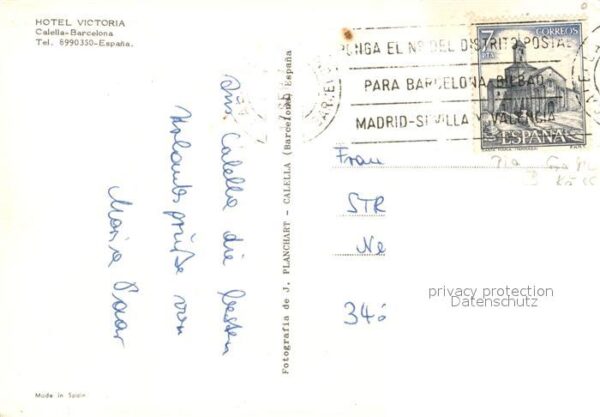 HOTEL VICTORIA
Calella-Barcelona
Tel. 8990350-España.
Aus Calella die besten
Urlaubsgrüße von
Maria Paar
Fotografia de J. PLANCHART - CALELLA (Barcelona) España
PONGA EL Nº DEL DISTRITO POSTAL
PARA BARCELONA, BILBAO,
MADRID-SEVILLA Y VALENCIA
7
PTA
CORREOS
ESPAÑA
Frau
STR
Ne
privacy protection
Datenschutz
Made in Spain